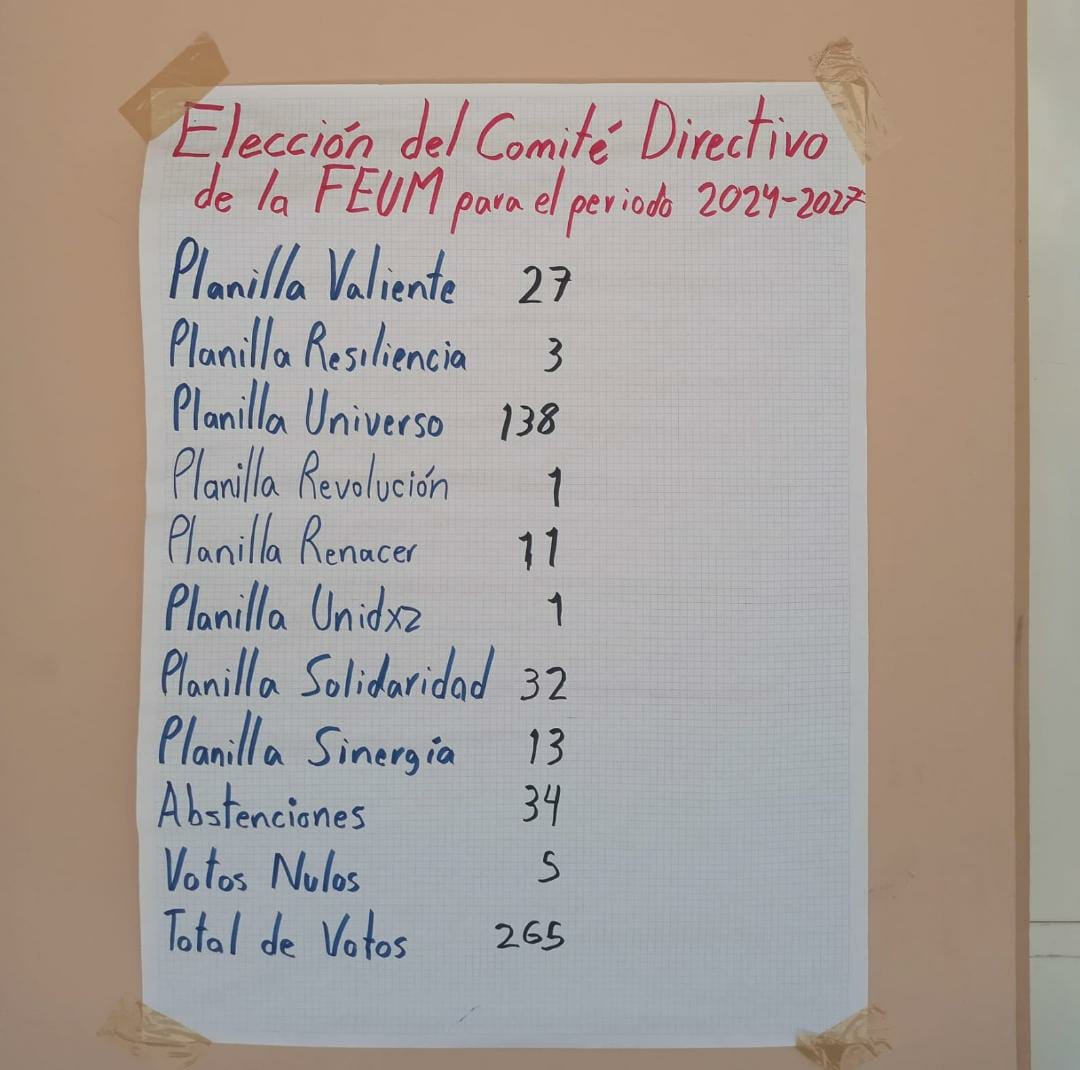 Elección del Comité Directivo
de la FEUM para el periodo 2024-2027
Planilla Valiente 27
Planilla Resiliencia 3
Planilla Universo 138
Planilla Revolución 1
Planilla Renacer 11
Planilla Unidxz 1
Planilla Solidaridad 32
Planilla Sinergía 13
Abstenciones 34
Votos Nulos 5
Total de Votos 265